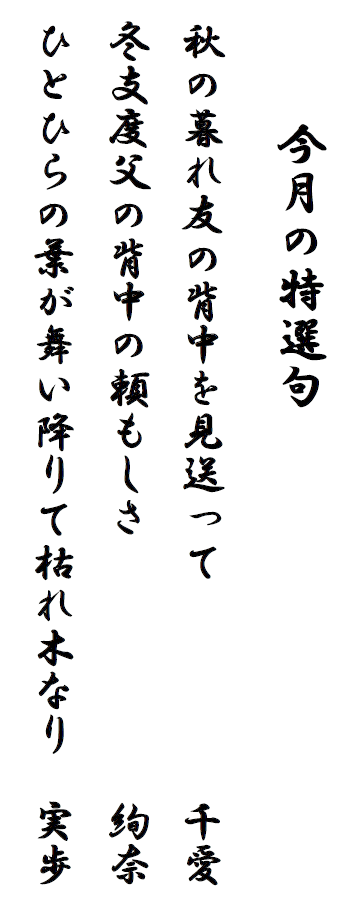 今月の特選句
秋の暮れ友の背中を見送って 千愛
冬支度父の背中の頼もしさ 絢奈
ひとひらの葉が舞い降りて枯れ木なり 実歩